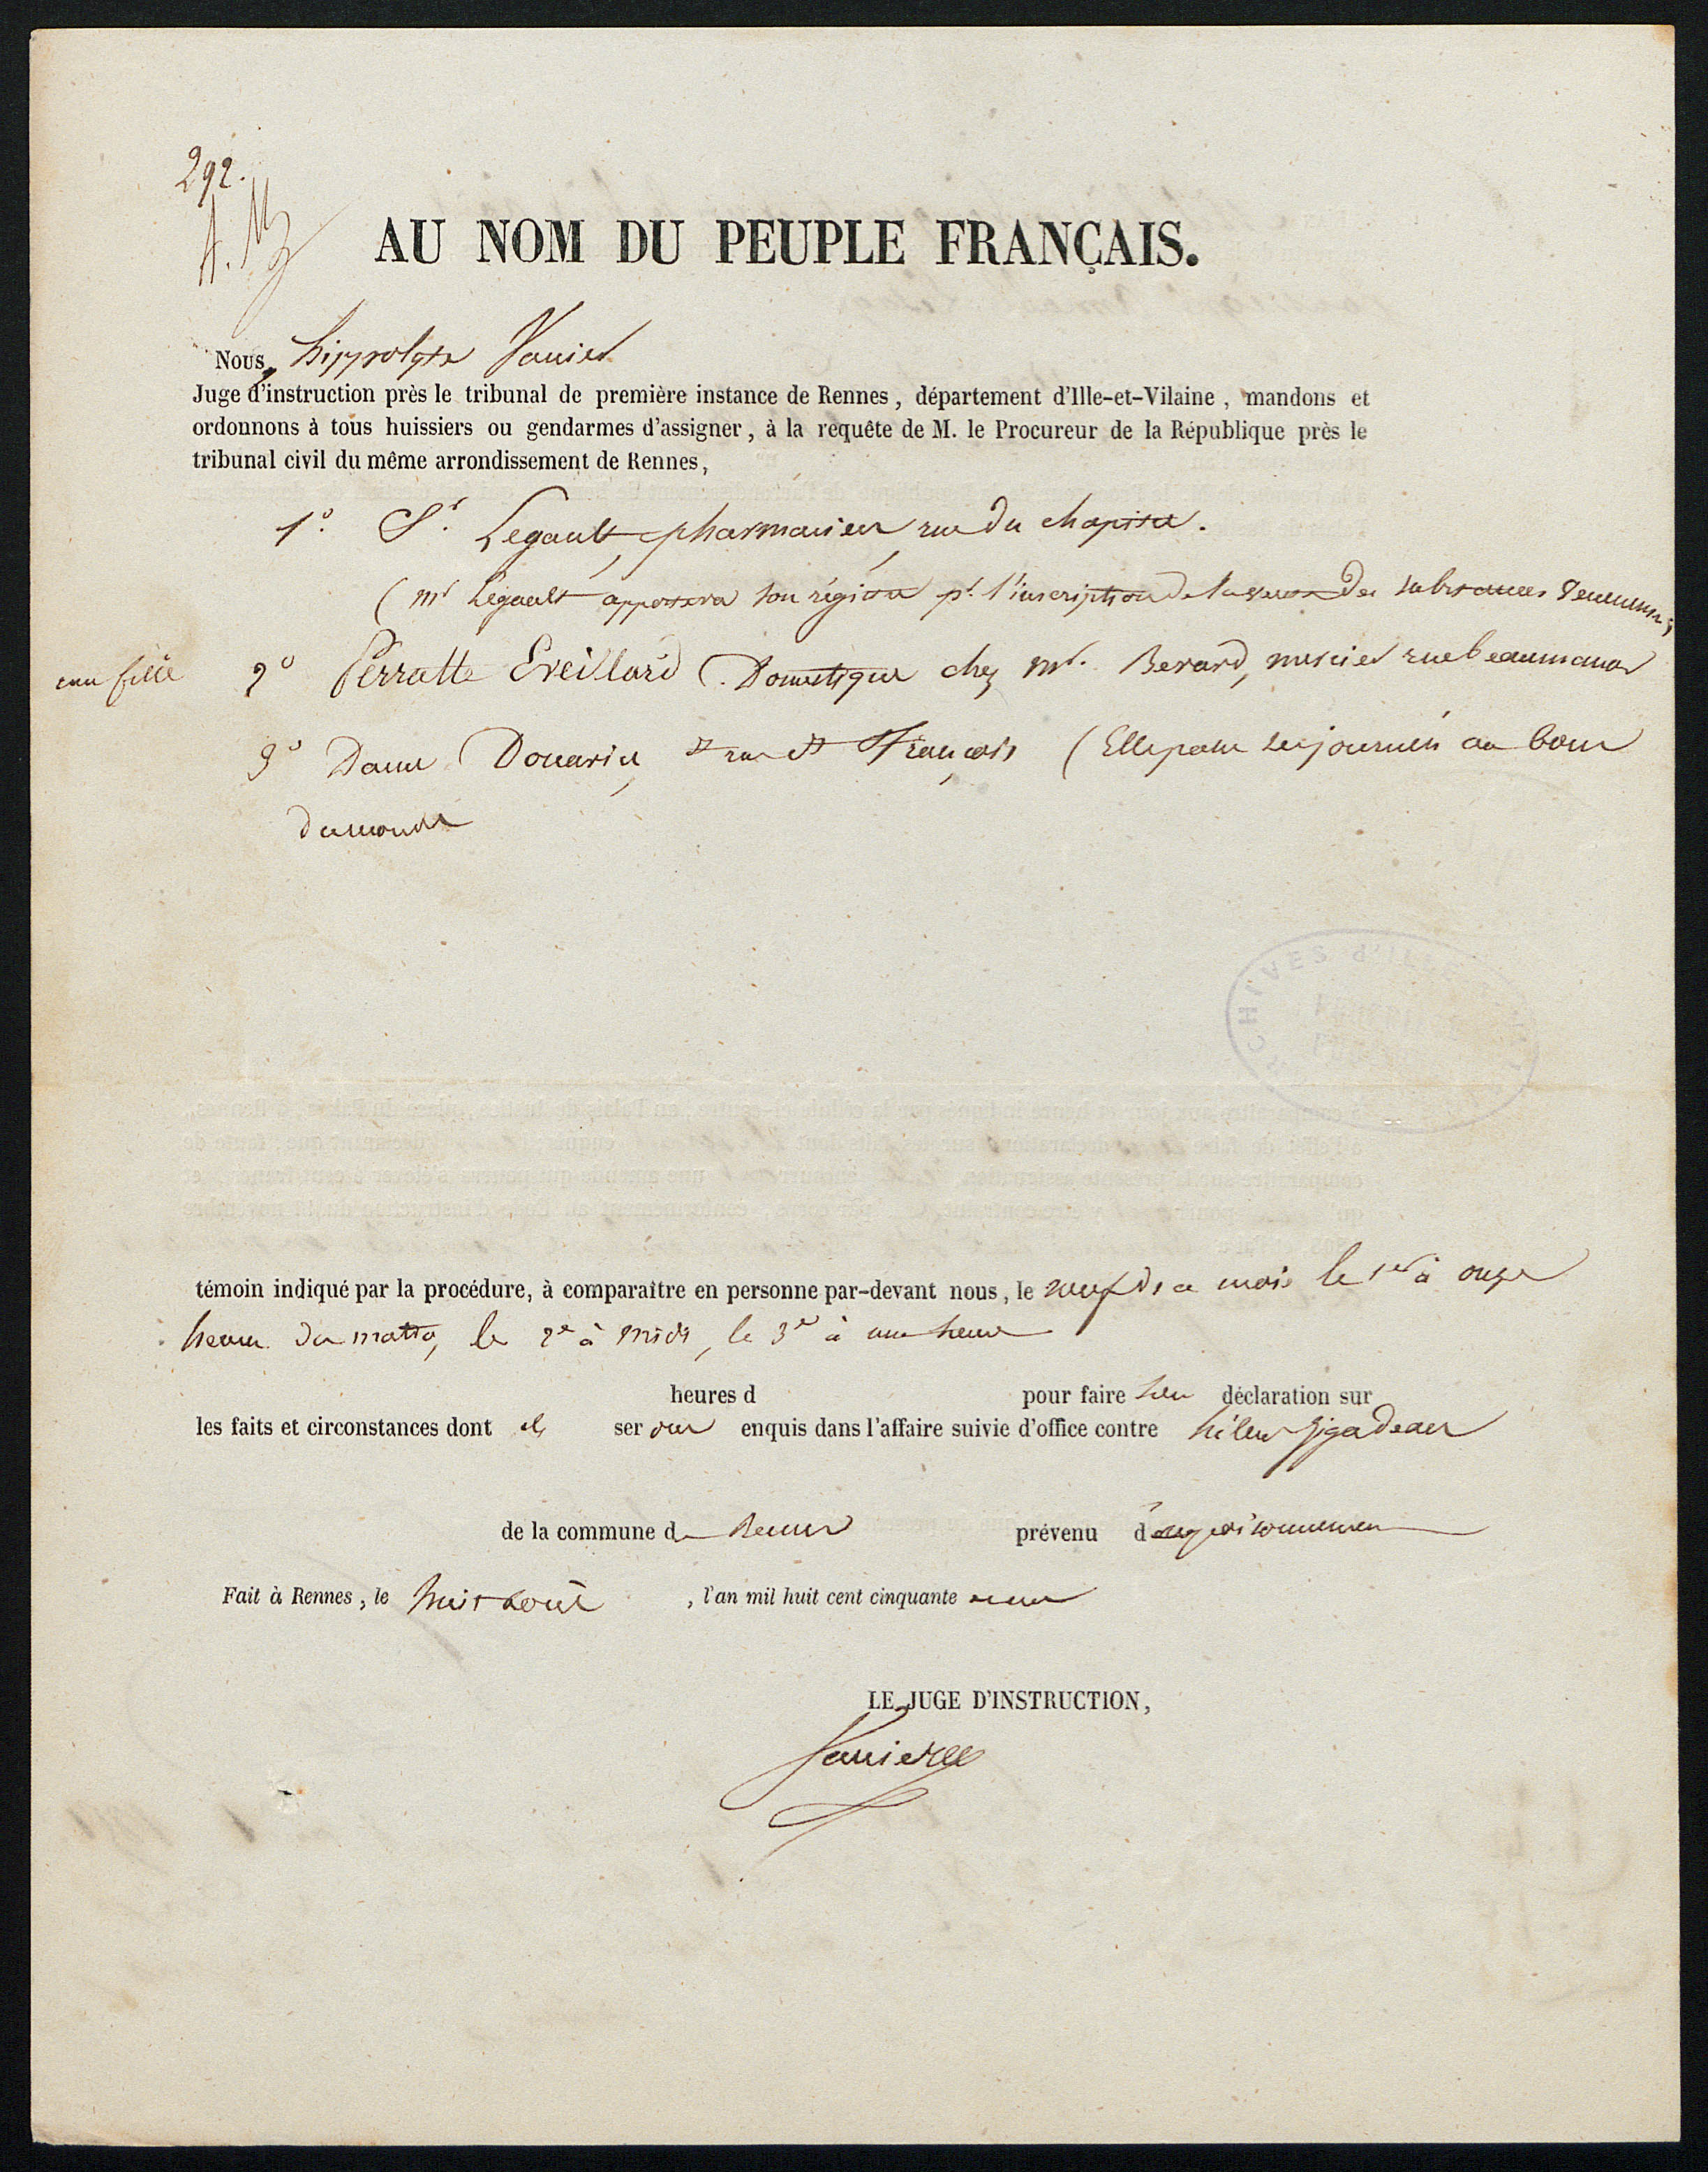 292.
AU NOM DU PEUPLE FRANÇAIS.
Nous, hippolyte Vannier
Juge d'instruction près le tribunal de première instance de Rennes, département d'Ille-et-Vilaine, mandons et
ordonnons à tous huissiers ou gendarmes d'assigner, à la requête de M. le Procureur de la République près le
tribunal civil du même arrondissement de Rennes,
1° Sr. Legault, pharmacien, rue du chapitre.
(mr Legault apportera son régistre pr. l'inscription de la vente des substances vénéneuses
2° Perrotte Eveillard Domestique chez mr. Berard, rue beaumanoir
3° Dame Douarin, rue St François (Elle passe ses journées au bout
du monde
ARCHIVES d'ILLE
témoin indiqué par la procédure, à comparaître en personne par-devant nous, le neuf de ce mois le 1er à onze
heures du matin, le 2e à midi, le 3e à une heure
heures d pour faire leur déclaration sur
les faits et circonstances dont ils seront enquis dans l'affaire suivie d'office contre hélène Jégadeau
de la commune de Rennes prévenu d'empoisonnement
Fait à Rennes, le huit août, l'an mil huit cent cinquante un
LE JUGE D'INSTRUCTION,
Vannier